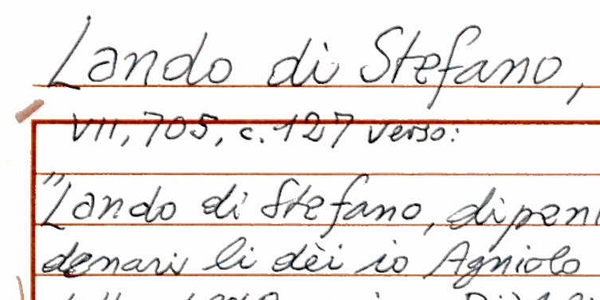 Lando di Stefano,
VII, 705, c. 127 verso:
"Lando di Stefano, dipeni
denari li dèi io Agniolo